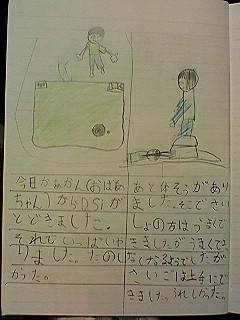 今日かなかん(おばあ
ちゃん)からDSiが
とどきました。
それでいっぱいや
りました。たのし
かった。
あと体そうがあり
ました。そこでさい
しょの方はうまくで
きましたがうまくでき
なくな でしたが
さいごは上手にで
きました。うれしかった。